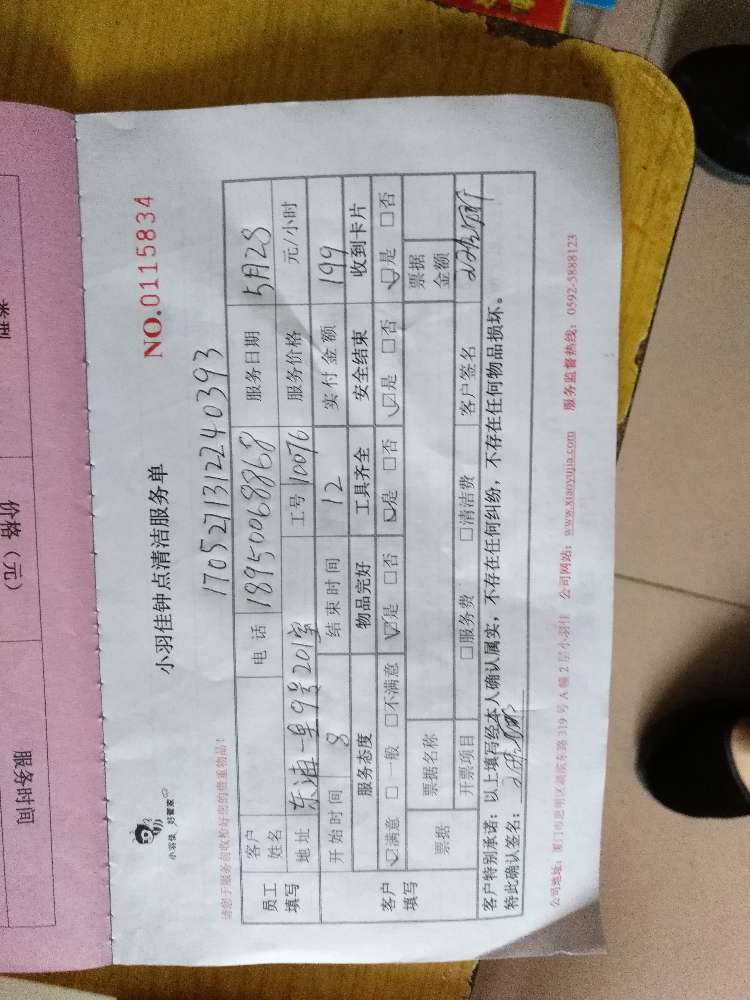 类型
价格（元）
服务时间
小羽佳 好管家
小羽佳钟点清洁服务单
NO.0115834
请您于服务前收检好您的贵重物品！
1705271312240393
员工填写
客户姓名
电话 18950068868
服务日期 5月28
地址 东浦一里9号201室
工号 10076
服务价格 元/小时
开始时间 8
结束时间 12
实付金额 199
客户填写
服务态度 物品完好 工具齐全 安全结束 收到卡片
☑满意 □一般 □不满意 ☑是 □否 ☑是 □否 ☑是 □否 ☑是 □否
票据
票据名称
票据金额
开票项目 □服务费 □清洁费 客户签名
客户特别承诺：以上填写经本人确认属实，不存在任何纠纷，不存在任何物品损坏。
特此确认签名：
公司地址：厦门市思明区湖滨东路319号A幢2层小羽佳 公司网站：www.xiaoyujia.com 服务监督热线：0592-5888123